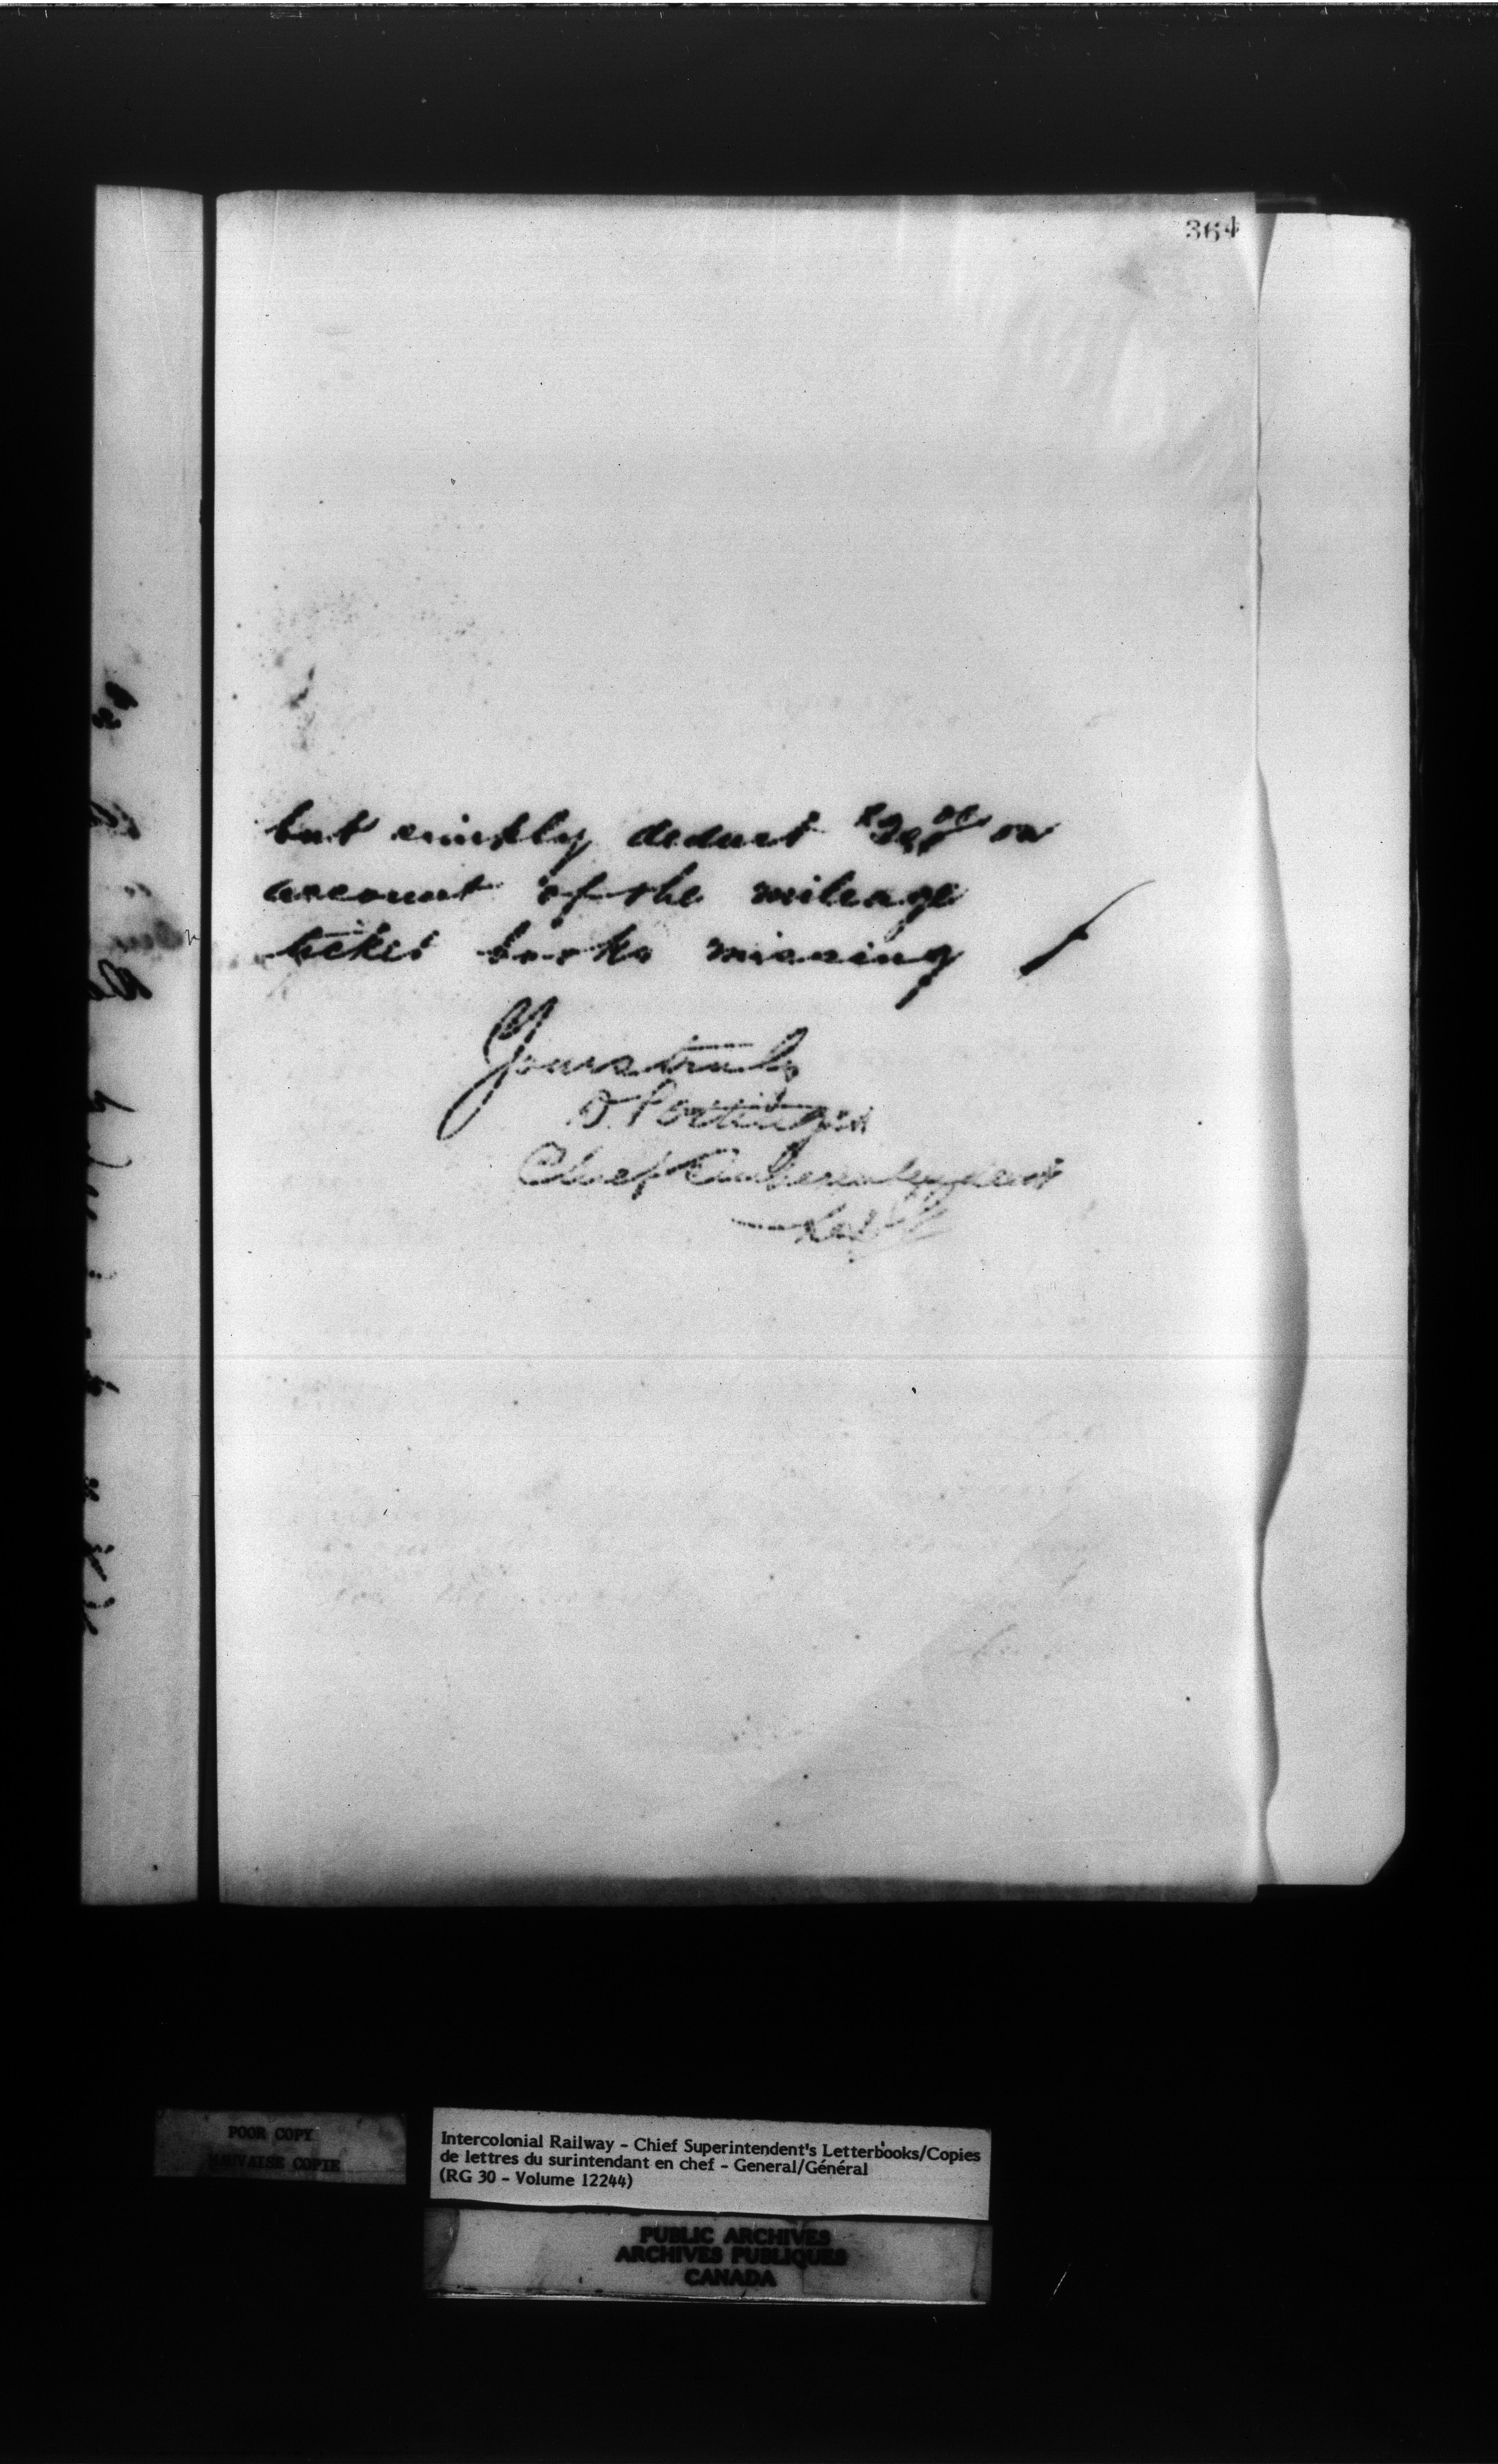 364
but simply deduct $20.00 on
account of the mileage
ticket books missing
Yours truly
D. Pottinger
Chief Superintendent
POOR COPY
MAUVAISE COPIE
Intercolonial Railway - Chief Superintendent's Letterbooks/Copies
de lettres du surintendant en chef - General/Général
(RG 30 - Volume 12244)
PUBLIC ARCHIVES
ARCHIVES PUBLIQUES
CANADA